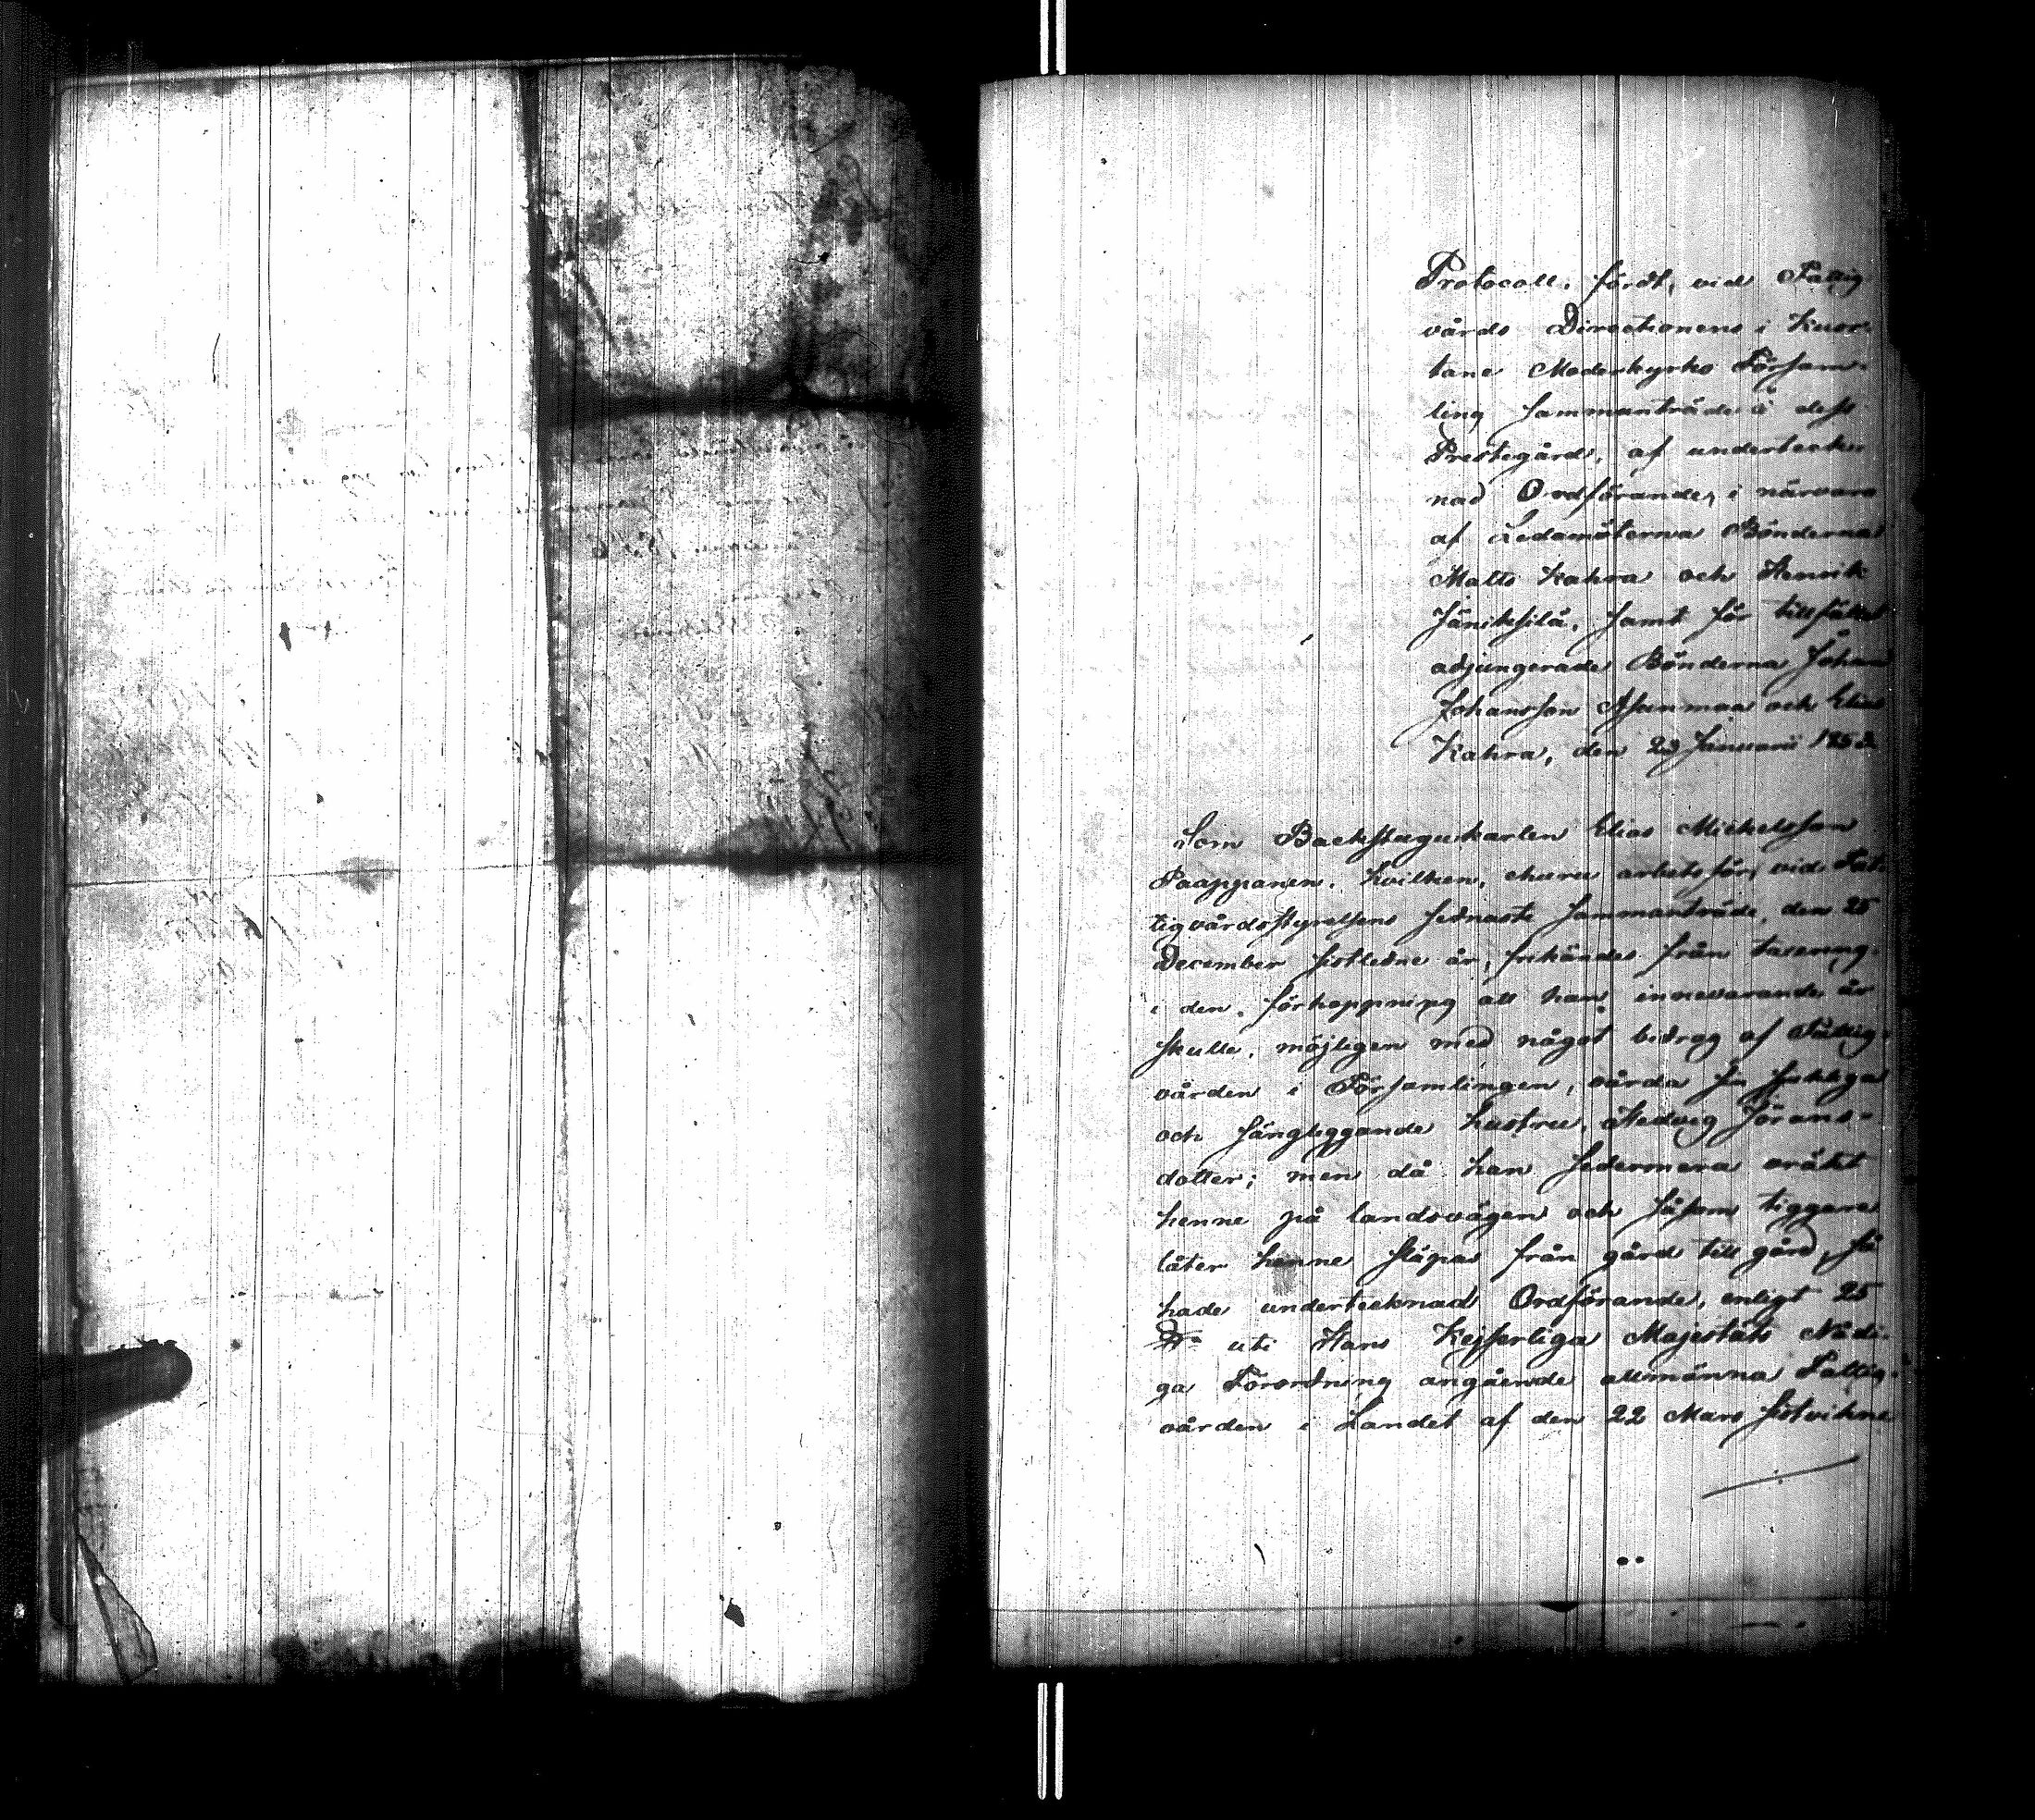 Protocoll, fördt, vid Fattig-
vårds Directionens i Kuor-
tane Moderkyrko Försam-
ling sammanträde å dess
Prestegård, af underteck-
nad Ordförande, i närvaro
af Ledamöterna Bönderna
Matts Kahra och Henrik
Jäniksilä, samt för tillfället
adjungerade Bönderna Johan
Johansson Asunmaa och Elias
Kahra, den Januarii 1853.
Som Backstugukarlen Elias Mickelsson
Paappanen, hvilken, ehuru arbetsför, vid Fat-
tigvårdsstyrelsens sednaste sammanträde, den 25
December sistledne år, frikändes från taxering
i den förhoppning att han innevarande år
skulle, möjligen med något bidrag af Fattig-
vården i Församlingen, vårda sin sjukliga
och sängliggande hustru, Hedvig Jörans-
dotter; men då han sedermera vräkt
henne på landsvägen och såsom tiggare
låter henne släpas från gård till gård, så
hade undertecknad Ordförande, enligt 25
uti Hans Kejserliga Majestäts Nådi-
ga Förordning angående allmänna Fattig-
vården i Landet af den 22 Mars sistvikne